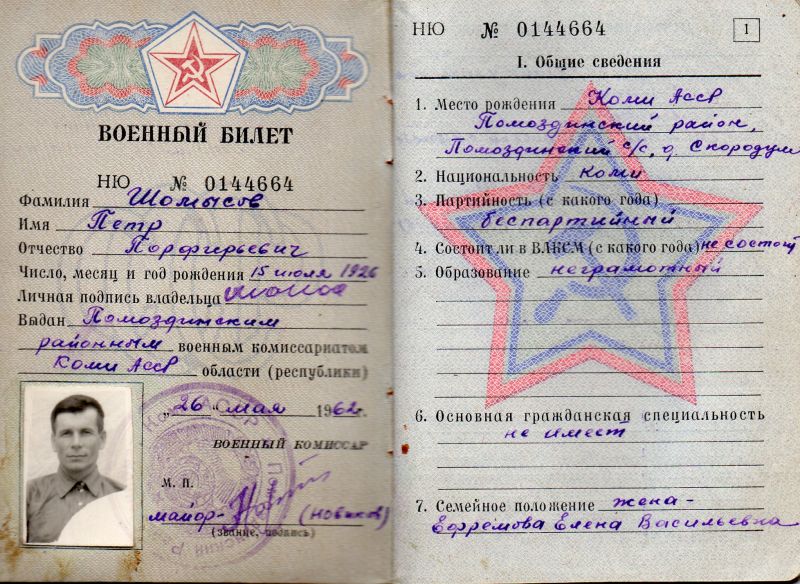 ВОЕННЫЙ БИЛЕТ
НЮ № 0144664
Фамилия Шомысов
Имя Петр
Отчество Порфирьевич
Число, месяц и год рождения 15 июля 1926
Личная подпись владельца
Выдан Помоздинским
районным военным комиссариатом
Коми Асср области (республики)
„26" мая 1962 г.
ВОЕННЫЙ КОМИССАР
М. П.
майор- (новиков)
(звание, подпись)
НЮ № 0144664
1
I. Общие сведения
1. Место рождения Коми Асср
Помоздинский район,
Помоздинский с/с, д. Скородум
2. Национальность коми
3. Партийность (с какого года)
беспартийный
4. Состоит ли в ВЛКСМ (с какого года) не состоит
5. Образование неграмотный
6. Основная гражданская специальность
не имеет
7. Семейное положение жена-
Ефремова Елена Васильевна